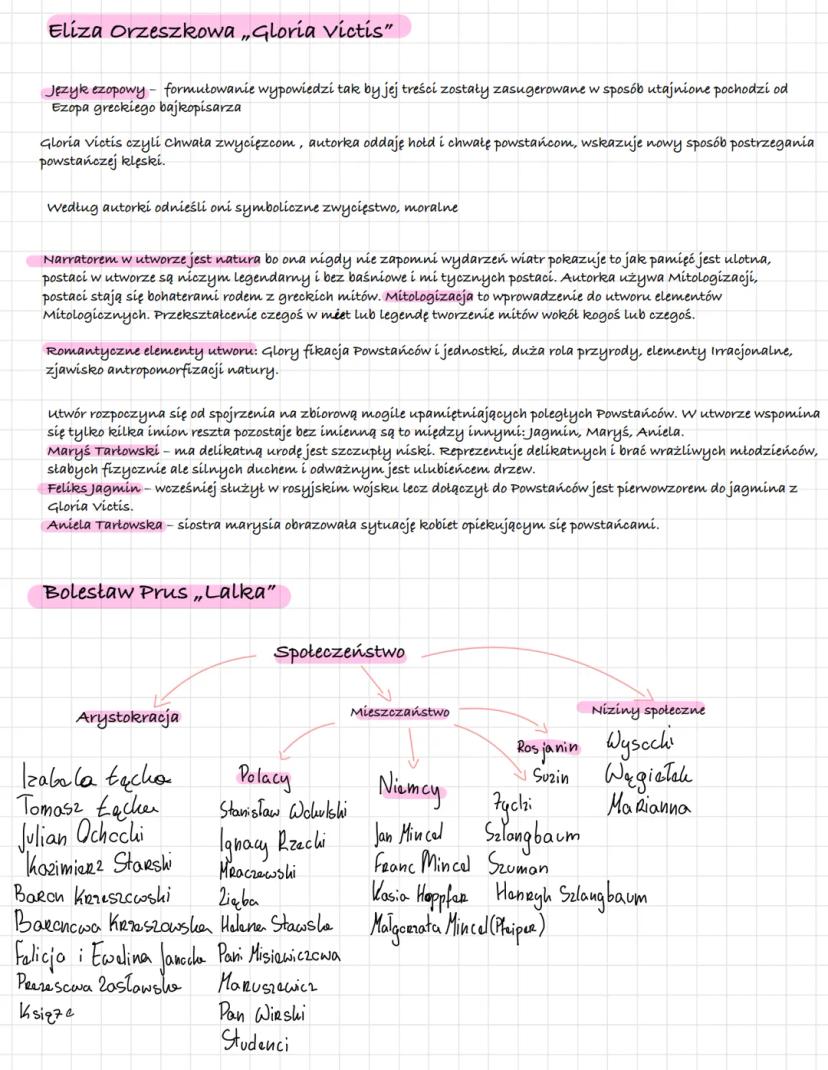 Eliza Orzeszkowa „Gloria Victis”
Język ezopowy – formułowanie wypowiedzi tak by jej treści zostały zasugerowane w sposób utajnione pochodzi od
Ezopa greckiego bajkopisarza
Gloria Victis czyli Chwała zwycięzcom , autorka oddaję hołd i chwałę powstańcom, wskazuje nowy sposób postrzegania
powstańczej klęski.
Według autorki odnieśli oni symboliczne zwycięstwo, moralne
Narratorem w utworze jest natura bo ona nigdy nie zapomni wydarzeń wiatr pokazuje to jak pamięć jest ulotna,
postaci w utworze są niczym legendarny i bez baśniowe i mi tycznych postaci. Autorka używa Mitologizacji,
postaci stają się bohaterami rodem z greckich mitów. Mitologizacja to wprowadzenie do utworu elementów
Mitologicznych. Przekształcenie czegoś w meet lub legendę tworzenie mitów wokół kogoś lub czegoś.
Romantyczne elementy utworu: Glory fikacja Powstańców i jednostki, duża rola przyrody, elementy Irracjonalne,
zjawisko antropomorfizacji natury.
Utwór rozpoczyna się od spojrzenia na zbiorową mogile upamiętniających poległych Powstańców. W utworze wspomina
się tylko kilka imion reszta pozostaje bez imienną są to między innymi: Jagmin, Maryś, Aniela.
Maryś Tarłowski – ma delikatną urodę jest szczupły niski. Reprezentuje delikatnych i brać wrażliwych młodzieńców,
słabych fizycznie ale silnych duchem i odważnym jest ulubieńcem drzew.
Feliks Jagmin – wcześniej służył w rosyjskim wojsku lecz dołączył do Powstańców jest pierwowzorem do jagmina z
Gloria Victis.
Aniela Tarłowska – siostra marysia obrazowała sytuację kobiet opiekującym się powstańcami.
Bolesław Prus „Lalka”
Społeczeństwo
Arystokracja
Mieszczaństwo
Niziny społeczne
Izabela Łęcka
Tomasz Łęcki
Julian Ochocki
Kazimierz Starski
Baron Krzeszowski
Baronowa Krzeszowska
Felicja i Ewelina Janocka
Prezesowa Zasławska
Książę
Polacy
Stanisław Wokulski
Ignacy Rzecki
Mraczewski
Zięba
Helena Stawska
Pani Misiewiczowa
Maruszewicz
Pan Wirski
Studenci
Niemcy
Jan Mincel
Franc Mincel
Kasia Hoppfer
Małgorzata Mincel (Pfeiper)
Rosjanin
Suzin
Żydzi
Szlangbaum
Szuman
Henryk Szlangbaum
Wysocki
Węgiełek
Marianna